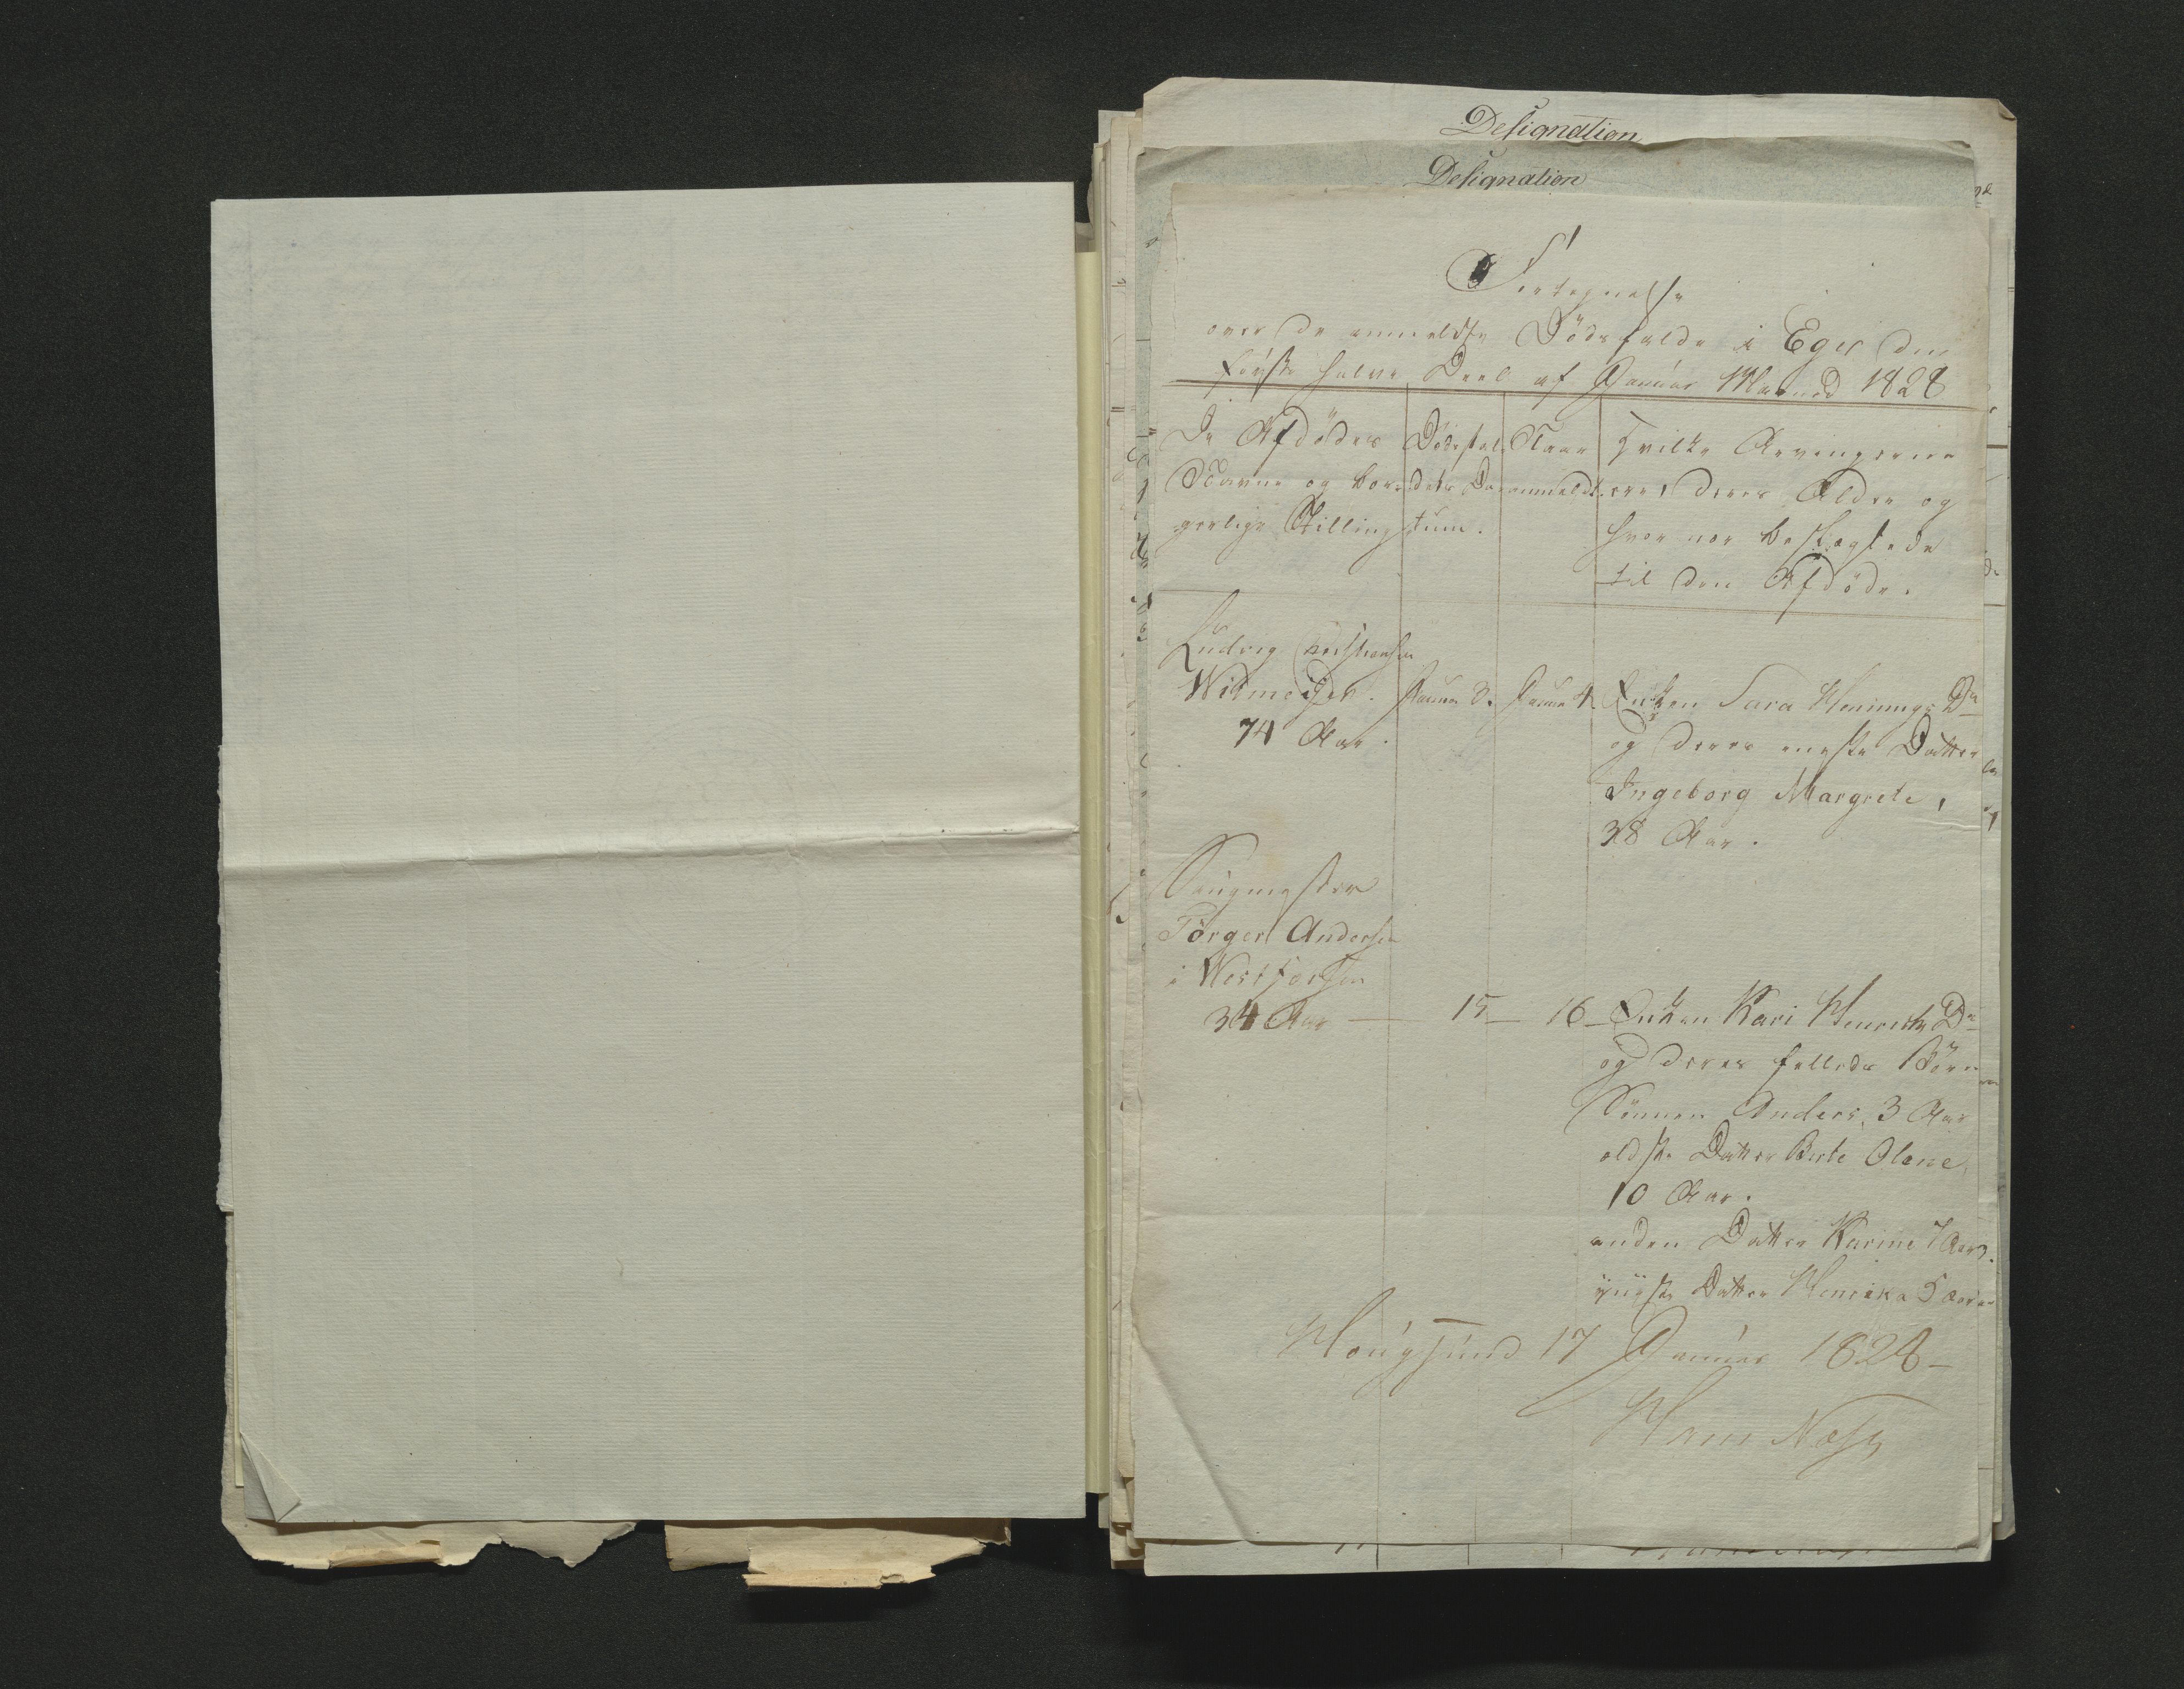 Designation
Designation
Fortegnelse
over de anmeldte Dödsfalde i Eger den
förste halve Deel af Januar Maaned 1828
De Afdödes
Navne og bor-
gerlige Stilling
Dödsfal-
dets Da-
tum.
Naar
anmeldt.
Hvilke Arvingerne
ere, deres Alder og
hvor nær beslægtede
til den Afdöde.
Ludvig Christiansen
Witmeyer.
74 Aar.
Januar 3.
Januar 4
Enken Sara Hennings D.
og deres eneste Datter
Ingeborg Margrete,
38 Aar.
Saugmester
Törger Andersen
i Westfossen
34 Aar — 15 — 16 — Enken Kari Henriks D.
og deres felleds Börn
Sönnen Anders, 3 Aar
eldste Datter Berte Olene,
10 Aar.
anden Datter Karine 7 Aar.
yngste Datter Henrika 5 Aar
Hougsund 17 Januar 1828 —
Hans Næss